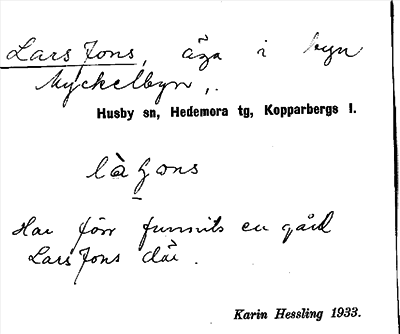 Lars Jons, äga i byn
Myckelbyn,.
Husby sn, Hedemora tg, Kopparbergs l.
Har förr funnits en gård
Lars Jons där.
Karin Hessling 1933.